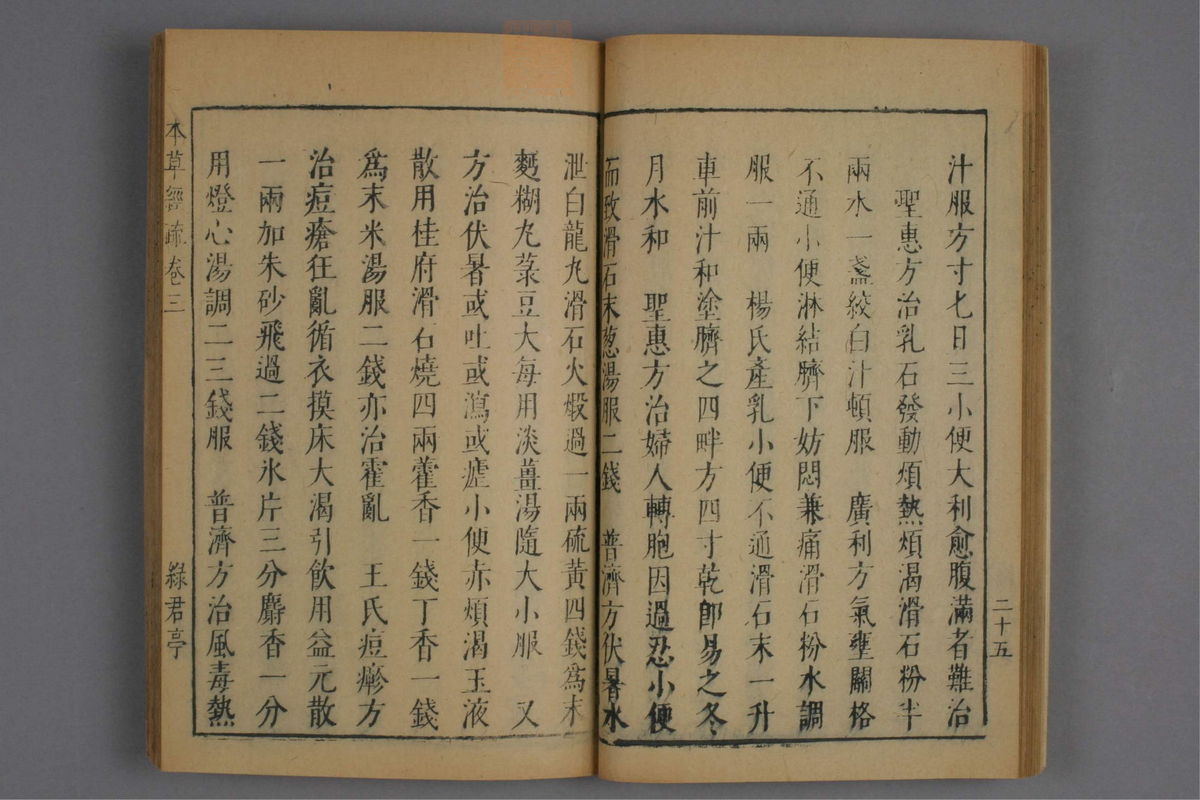 汁服方寸七日三小便大利愈腹滿者難治
聖惠方治乳石發動煩熱煩渴滑石粉半
兩水一盞絞白汁頓服　廣利方氣壅關格
不通小便淋結臍下妨悶兼痛滑石粉水調
服一兩　楊氏產乳小便不通滑石末一升
車前汁和塗臍之四畔方四寸乾即易之冬
月水和　聖惠方治婦人轉胞因過忍小便
而致滑石末葱湯服二錢　普濟方伏暑水
泄白龍丸滑石火煅過一兩硫黃四錢為末
麪糊丸菉豆大每用淡薑湯隨大小服　又
方治伏暑或吐或瀉或瘧小便赤煩渴玉液
散用桂府滑石燒四兩藿香一錢丁香一錢
爲末米湯服二錢亦治霍亂　王氏痘疹方
治痘瘡狂亂循衣摸床大渴引飲用益元散
一兩加朱砂飛過二錢氷片三分麝香一分
用燈心湯調二三錢服　普濟方治風毒熱
二十五
本草經疏卷三
綠君亭